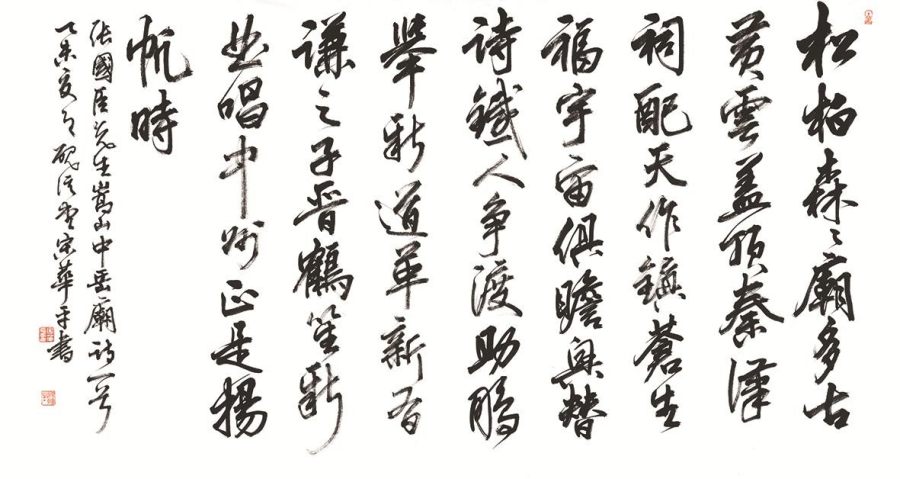 松柏森々廟多古
黄雲盖頂秦漢
祠配天作鎮蒼生
福宇宙俱瞻興替
詩鐵人争渡助鵬
舉新道革新有
謙之子晋鶴笙新
曲唱中州正是揚
帆時
張國臣先生嵩山中岳廟詩一首
乙未夏月宋華平書